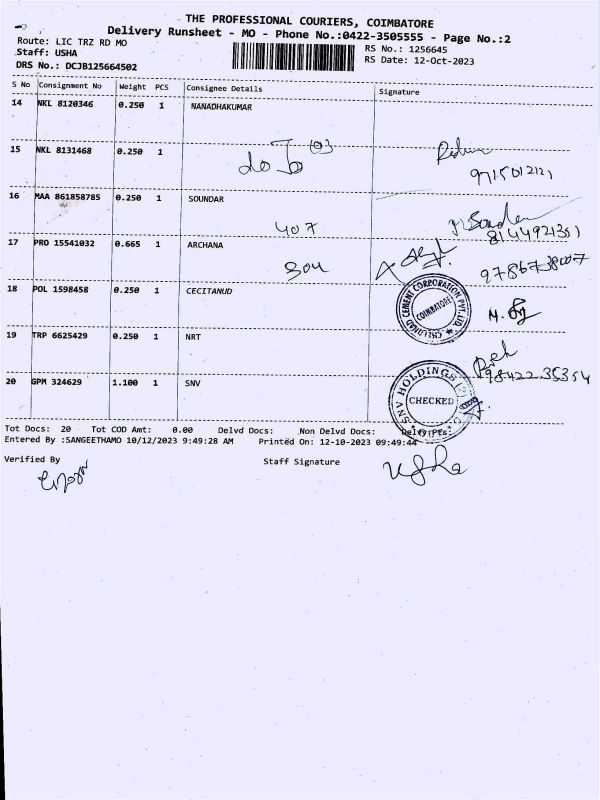 THE PROFESSIONAL COURIERS, COIMBATORE
Delivery Runsheet - MO - Phone No.:0422-3505555 - Page No.:2
Route: LIC TRZ RD MO
RS No.: 1256645
Staff: USHA
RS Date: 12-Oct-2023
DRS No.: DCJB125664502
S No Consignment No Weight PCS Consignee Details Signature
14 NKL 8120346 0.250 1 NANADHAKUMAR
103
15 NKL 8131468 0.250 1
9715012121
16 MAA 861858785 0.250 1 SOUNDAR
407 8144921351
17 PRO 15541032 0.665 1 ARCHANA
304
18 POL 1598458 0.250 1 CECITANUD
CHELINAD CEMENT CORPORATION PVT. LTD.
(COIMBATORE)
19 TRP 6625429 0.250 1 NRT
98422 35354
20 GPM 324629 1.100 1 SNV
SNV HOLDINGS
CHECKED
Tot Docs: 20 Tot COD Amt: 0.00 Delvd Docs: Non Delvd Docs: Delvy Pts:
Entered By :SANGEETHAMO 10/12/2023 9:49:28 AM Printed On: 12-10-2023 09:49:44
Verified By Staff Signature